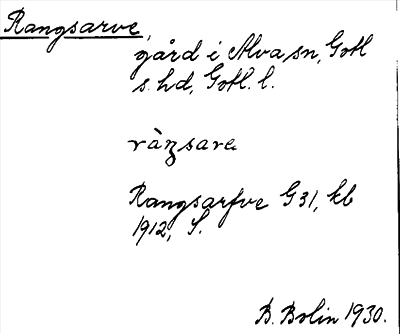 Rangsarve,
gård i Alva sn, Gotl
s. hd, Gotl. l.
ràŋsarve
Rangsarfve G 31, kb
1912, S.
B. Bolin 1930.